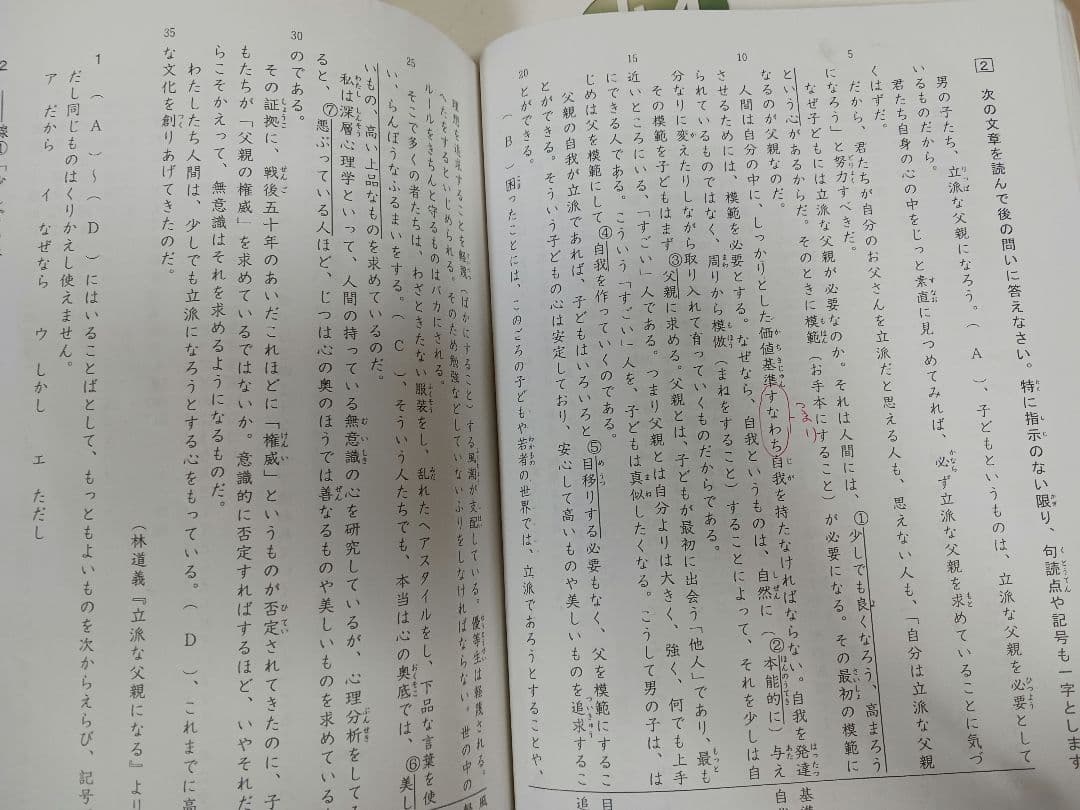 2 次の文章を読んで後の問いに答えなさい。特に指示のない限り、句読点や記号も一字とします
男の子たち、立派な父親になろう。（ A ）、子どもというものは、立派な父親を必要として
いるものだから。
君たち自身の心の中をじっと素直に見つめてみれば、必ず立派な父親を求めていることに気づ
くはずだ。
5 だから、君たちが自分のお父さんを立派だと思える人も、思えない人も、「自分は立派な父親
になろう」と努力すべきだ。
なぜ子どもには立派な父親が必要なのか。それは人間には、①少しでも良くなろう、高まろう
という心があるからだ。そのときに模範（お手本にすること）が必要になる。その最初の模範に
なるのが父親なのだ。
つまり
10 人間は自分の中に、しっかりとした価値基準すなわち自我を持たなければならない。自我を発達
させるためには、模範を必要とする。なぜなら、自我というものは、自然に（②本能的に）与え
られているものではなく、周りから模倣（まねをすること）することによって、それを少しは自
分なりに変えたりしながら取り入れて育っていくものだからである。
その模範を子どもはまず③父親に求める。父親とは、子どもが最初に出会う「他人」であり、最も
15 近いところにいる、「すごい」人である。つまり父親とは自分よりは大きく、強く、何でも上手
にできる人である。こういう「すごい」人を、子どもは真似したくなる。こうして男の子は、は
じめは父を模範にして④自我を作っていくのである。
父親の自我が立派であれば、子どもはいろいろと⑤目移りする必要もなく、父を模範にするこ
とができる。そういう子どもの心は安定しており、安心して高いものや美しいものを追求するこ
20 とができる。
（ B ）困ったことには、このごろの子どもや若者の世界では、立派であろうとすることや、
理想を追求することを軽蔑（ばかにすること）する風潮が支配している。優等生は軽蔑される。
へたをするといじめられる。そのため勉強などしていないふりをしなければならない。世の中の
ルールをきちんと守るものはバカにされる。
25 そこで多くの者たちは、わざときたない服装をし、乱れたヘアスタイルをし、下品な言葉を使
い、らんぼうなふるまいをする。（ C ）、そういう人たちでも、本当は心の奥底では、⑥美し
いもの、高い上品なものを求めているのだ。
私は深層心理学といって、人間の持っている無意識の心を研究しているが、心理分析をしてみ
ると、⑦悪ぶっている人ほど、じつは心の奥のほうでは善なるものや美しいものを求めている
30 のである。
その証拠に、戦後五十年のあいだこれほどに「権威」というものが否定されてきたのに、子
もたちが「父親の権威」を求めているではないか。意識的に否定すればするほど、いやそれだ
らこそかえって、無意識はそれを求めるようになるものだ。
わたしたち人間は、少しでも立派になろうとする心をもっている。（ D ）、これまでに高
35 な文化を創りあげてきたのだ。
（林道義『立派な父親になる』より
1 （ A ）～（ D ）にはいることばとして、もっともよいものを次からえらび、記号
だし同じものはくりかえし使えません。
ア だから イ なぜなら ウ しかし エ ただし
2 線①「